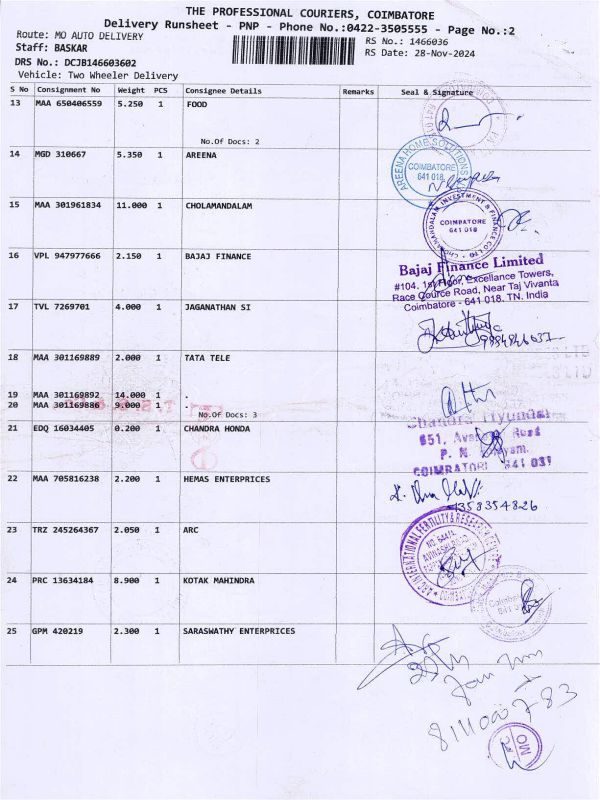 THE PROFESSIONAL COURIERS, COIMBATORE
Delivery Runsheet - PNP - Phone No.:0422-3505555 - Page No.:2
Route: MO AUTO DELIVERY
RS No.: 1466036
Staff: BASKAR
RS Date: 28-Nov-2024
DRS No.: DCJB146603602
Vehicle: Two Wheeler Delivery
S No Consignment No Weight PCS Consignee Details Remarks Seal & Signature
13 MAA 650406559 5.250 1 FOOD
No.Of Docs: 2
14 MGD 310667 5.350 1 AREENA
AREENA HOME SOLUTIONS
COIMBATORE
641 018
15 MAA 301961834 11.000 1 CHOLAMANDALAM
CHOLAMANDALAM INVESTMENT & FINANCE CO LTD
COIMBATORE
641 018
16 VPL 947977666 2.150 1 BAJAJ FINANCE
Bajaj Finance Limited
#104, 1st Floor, Excellance Towers,
Race Cource Road, Near Taj Vivanta
Coimbatore - 641 018. TN. India
17 TVL 7269701 4.000 1 JAGANATHAN SI
9994846037
18 MAA 301169889 2.000 1 TATA TELE
19 MAA 301169892 14.000 1 .
20 MAA 301169886 9.000 1 .
No.Of Docs: 3
21 EDQ 16034405 0.200 1 CHANDRA HONDA
Chandra Hyundai
851, Road
P. N.
COIMBATORE 641 037
22 MAA 705816238 2.200 1 HEMAS ENTERPRICES
23 TRZ 245264367 2.050 1 ARC
ARC INTERNATIONAL FERTILITY & RESEARCH
24 PRC 13634184 8.900 1 KOTAK MAHINDRA
25 GPM 420219 2.300 1 SARASWATHY ENTERPRICES
MO